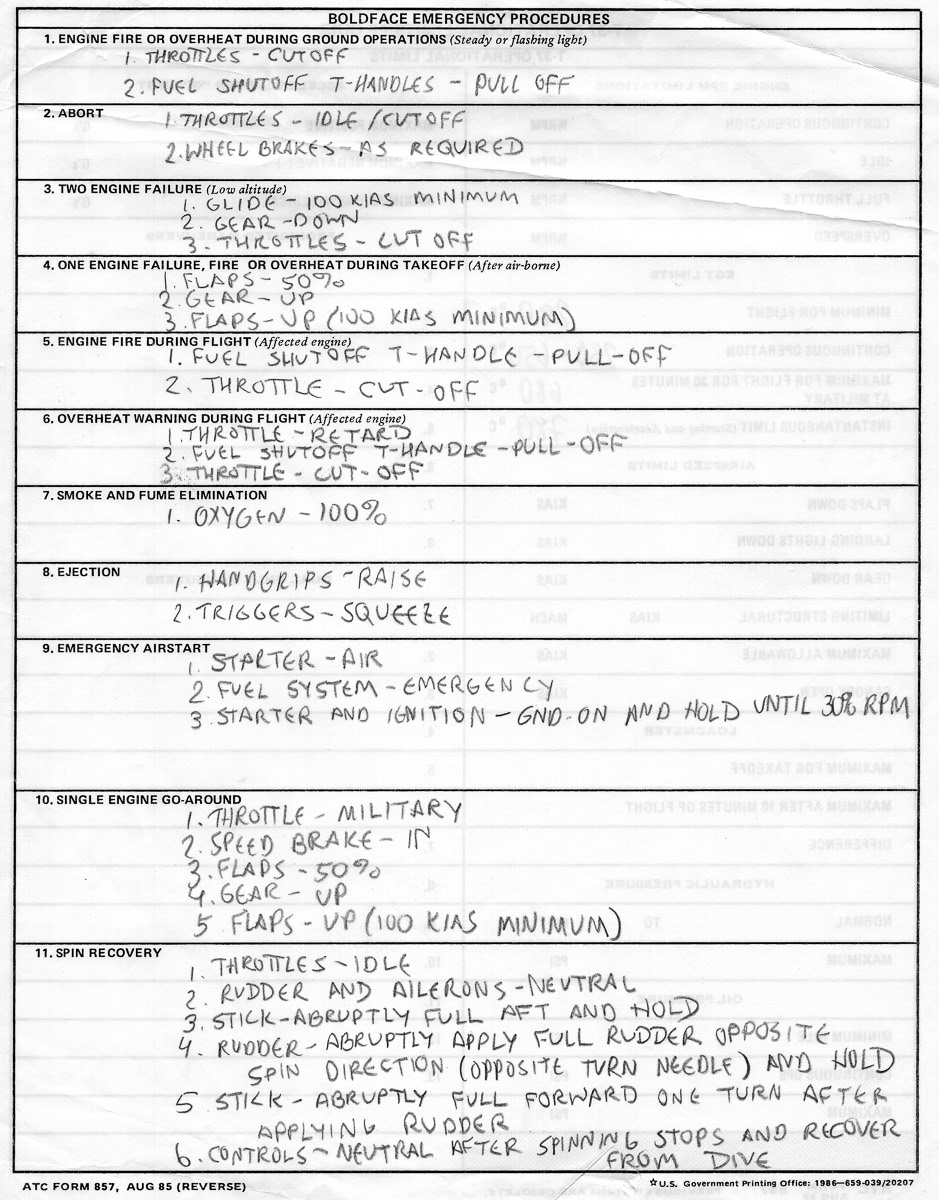 BOLDFACE EMERGENCY PROCEDURES
1. ENGINE FIRE OR OVERHEAT DURING GROUND OPERATIONS (Steady or flashing light)
1. THROTTLES - CUTOFF
2. FUEL SHUTOFF T-HANDLES - PULL OFF
2. ABORT
1. THROTTLES - IDLE/CUTOFF
2. WHEEL BRAKES - AS REQUIRED
3. TWO ENGINE FAILURE (Low altitude)
1. GLIDE - 100 KIAS MINIMUM
2. GEAR - DOWN
3. THROTTLES - CUT OFF
4. ONE ENGINE FAILURE, FIRE OR OVERHEAT DURING TAKEOFF (After air-borne)
1. FLAPS - 50%
2. GEAR - UP
3. FLAPS - UP (100 KIAS MINIMUM)
5. ENGINE FIRE DURING FLIGHT (Affected engine)
1. FUEL SHUTOFF T-HANDLE - PULL-OFF
2. THROTTLE - CUT-OFF
6. OVERHEAT WARNING DURING FLIGHT (Affected engine)
1. THROTTLE - RETARD
2. FUEL SHUTOFF T-HANDLE - PULL - OFF
3. THROTTLE - CUT-OFF
7. SMOKE AND FUME ELIMINATION
1. OXYGEN - 100%
8. EJECTION
1. HANDGRIPS - RAISE
2. TRIGGERS - SQUEEZE
9. EMERGENCY AIRSTART
1. STARTER - AIR
2. FUEL SYSTEM - EMERGENCY
3. STARTER AND IGNITION - GND-ON AND HOLD UNTIL 30% RPM
10. SINGLE ENGINE GO-AROUND
1. THROTTLE - MILITARY
2. SPEED BRAKE - IN
3. FLAPS - 50%
4. GEAR - UP
5 FLAPS - UP (100 KIAS MINIMUM)
11. SPIN RECOVERY
1. THROTTLES - IDLE
2. RUDDER AND AILERONS - NEUTRAL
3. STICK - ABRUPTLY FULL AFT AND HOLD
4. RUDDER - ABRUPTLY APPLY FULL RUDDER OPPOSITE
SPIN DIRECTION (OPPOSITE TURN NEEDLE) AND HOLD
5 STICK - ABRUPTLY FULL FORWARD ONE TURN AFTER
APPLYING RUDDER
6. CONTROLS - NEUTRAL AFTER SPINNING STOPS AND RECOVER
FROM DIVE
ATC FORM 857, AUG 85 (REVERSE)
☆U.S. Government Printing Office: 1986-659-039/20207